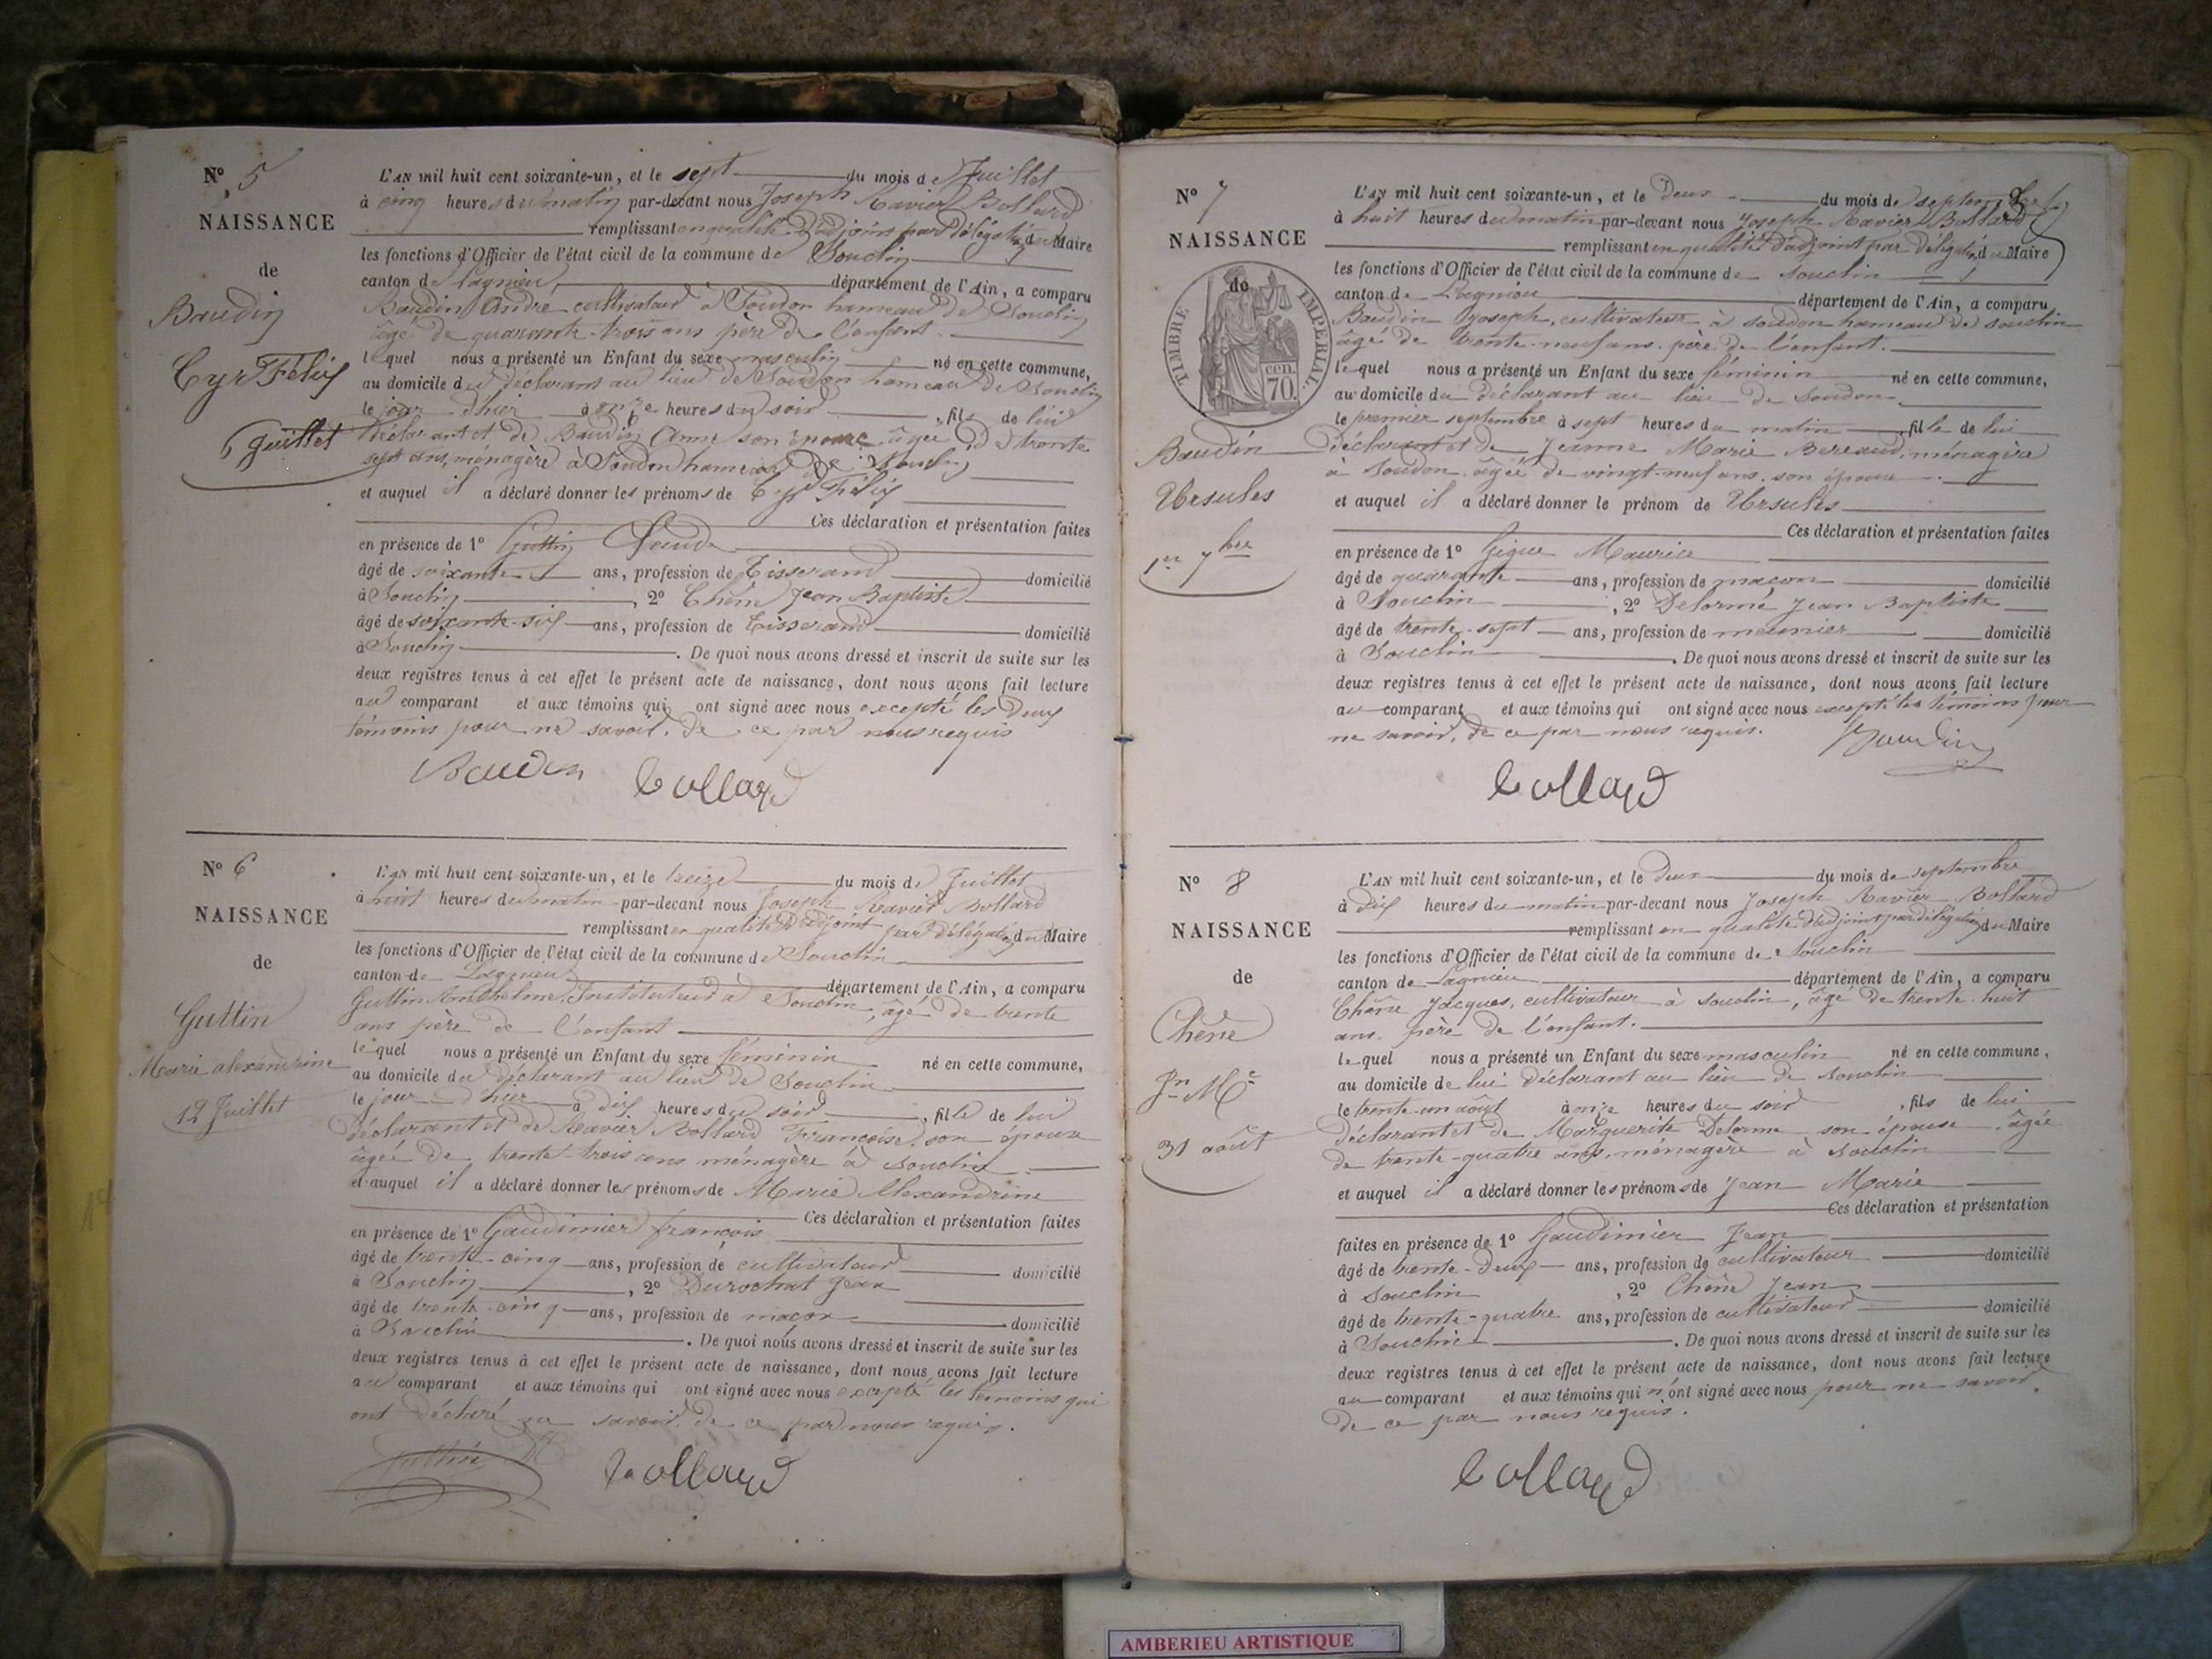 N° 5
NAISSANCE
de
Baudin
Cyr Félix
6 Juillet
L'AN mil huit cent soixante-un, et le sept du mois de Juillet
à cinq heures du matin par-devant nous Joseph Xavier Bollard
remplissant en qualité d'adjoint par délégation du Maire
les fonctions d'Officier de l'état civil de la commune de Souclin
canton de Lagnieu, département de l'Ain, a comparu
Baudin André cultivateur à Soudon hameau de Souclin
âgé de quarante-trois ans père de l'enfant.
lequel nous a présenté un Enfant du sexe masculin né en cette commune,
au domicile du déclarant au lieu de Soudon hameau de Souclin
le jour d'hier à onze heures du soir, fils de lui
déclarant et de Baudin Anne son épouse âgée de trente
sept ans, ménagère à Soudon hameau de Souclin
et auquel il a déclaré donner les prénoms de Cyr Félix
Ces déclaration et présentation faites
en présence de 1° Guttin Claude
âgé de soixante ans, profession de Tisserand domicilié
à Souclin, 2° Chêne Jean Baptiste
âgé de soixante-six ans, profession de Tisserand domicilié
à Souclin. De quoi nous avons dressé et inscrit de suite sur les
deux registres tenus à cet effet le présent acte de naissance, dont nous avons fait lecture
au comparant et aux témoins qui ont signé avec nous excepté les deux
témoins pour ne savoir, de ce par nous requis
Baudin Bollard
N° 6
NAISSANCE
de
Guttin
Marie alexandrine
12 Juillet
L'AN mil huit cent soixante-un, et le treize du mois de Juillet
à huit heures du matin par-devant nous Joseph Xavier Bollard
remplissant en qualité d'adjoint par délégation du Maire
les fonctions d'Officier de l'état civil de la commune de Souclin
canton de Lagnieu département de l'Ain, a comparu
Guttin Anthelme, Instituteur à Souclin, âgé de trente
ans père de l'enfant
lequel nous a présenté un Enfant du sexe féminin né en cette commune,
au domicile du déclarant au lieu de Souclin
le jour d'hier à dix heures du soir, fille de lui
déclarant et de Xavier Bollard Françoise, son épouse
âgée de trente-trois ans ménagère à Souclin
et auquel il a déclaré donner les prénoms de Marie Alexandrine
Ces déclaration et présentation faites
en présence de 1° Gaudimier françois
âgé de trente-cinq ans, profession de cultivateur domicilié
à Souclin, 2° Durochat Jean
âgé de trente-cinq ans, profession de maçon domicilié
à Souclin. De quoi nous avons dressé et inscrit de suite sur les
deux registres tenus à cet effet le présent acte de naissance, dont nous avons fait lecture
au comparant et aux témoins qui ont signé avec nous excepté les témoins qui
ont déclaré ne savoir, de ce par nous requis.
Guttin Bollard
3
N° 7
NAISSANCE
de
TIMBRE IMPERIAL.
70 cen.
Baudin
Ursules
1er 7bre
L'AN mil huit cent soixante-un, et le deux du mois de septembre
à huit heures du matin par-devant nous Joseph Xavier Bollard
remplissant en qualité d'adjoint par délégation du Maire
les fonctions d'Officier de l'état civil de la commune de Souclin
canton de Lagnieu département de l'Ain, a comparu
Baudin Joseph, cultivateur à Soudon hameau de Souclin
âgé de trente-neuf ans, père de l'enfant.
lequel nous a présenté un Enfant du sexe féminin né en cette commune,
au domicile du déclarant au lieu de Soudon
le premier septembre à sept heures du matin, fille de lui
déclarant et de Jeanne Marie Bereaud, ménagère
à Soudon âgée de vingt-neuf ans, son épouse
et auquel il a déclaré donner le prénom de Ursules
Ces déclaration et présentation faites
en présence de 1° Gigue Maurice
âgé de quarante ans, profession de maçon domicilié
à Souclin, 2° Delorme Jean Baptiste
âgé de trente-sept ans, profession de meunier domicilié
à Souclin. De quoi nous avons dressé et inscrit de suite sur les
deux registres tenus à cet effet le présent acte de naissance, dont nous avons fait lecture
au comparant et aux témoins qui ont signé avec nous excepté les témoins pour
ne savoir, de ce par nous requis. Baudin
Bollard
N° 8
NAISSANCE
de
Chêne
Jn Me
31 août
L'AN mil huit cent soixante-un, et le deux du mois de septembre
à dix heures du matin par-devant nous Joseph Xavier Bollard
remplissant en qualité d'adjoint par délégation du Maire
les fonctions d'Officier de l'état civil de la commune de Souclin
canton de Lagnieu département de l'Ain, a comparu
Chêne Jacques, cultivateur à Souclin, âgé de trente-huit
ans, père de l'enfant.
lequel nous a présenté un Enfant du sexe masculin né en cette commune,
au domicile de lui déclarant au lieu de Souclin
le trente-un août à onze heures du soir, fils de lui
déclarant et de Marguerite Delorme son épouse, âgée
de trente-quatre ans, ménagère à Souclin
et auquel il a déclaré donner les prénoms de Jean Marie
Ces déclaration et présentation
faites en présence de 1° Gaudimier Jean
âgé de trente-deux ans, profession de cultivateur domicilié
à Souclin, 2° Chêne Jean
âgé de trente-quatre ans, profession de cultivateur domicilié
à Souclin. De quoi nous avons dressé et inscrit de suite sur les
deux registres tenus à cet effet le présent acte de naissance, dont nous avons fait lecture
au comparant et aux témoins qui n'ont signé avec nous pour ne savoir,
de ce par nous requis.
Bollard
AMBERIEU ARTISTIQUE